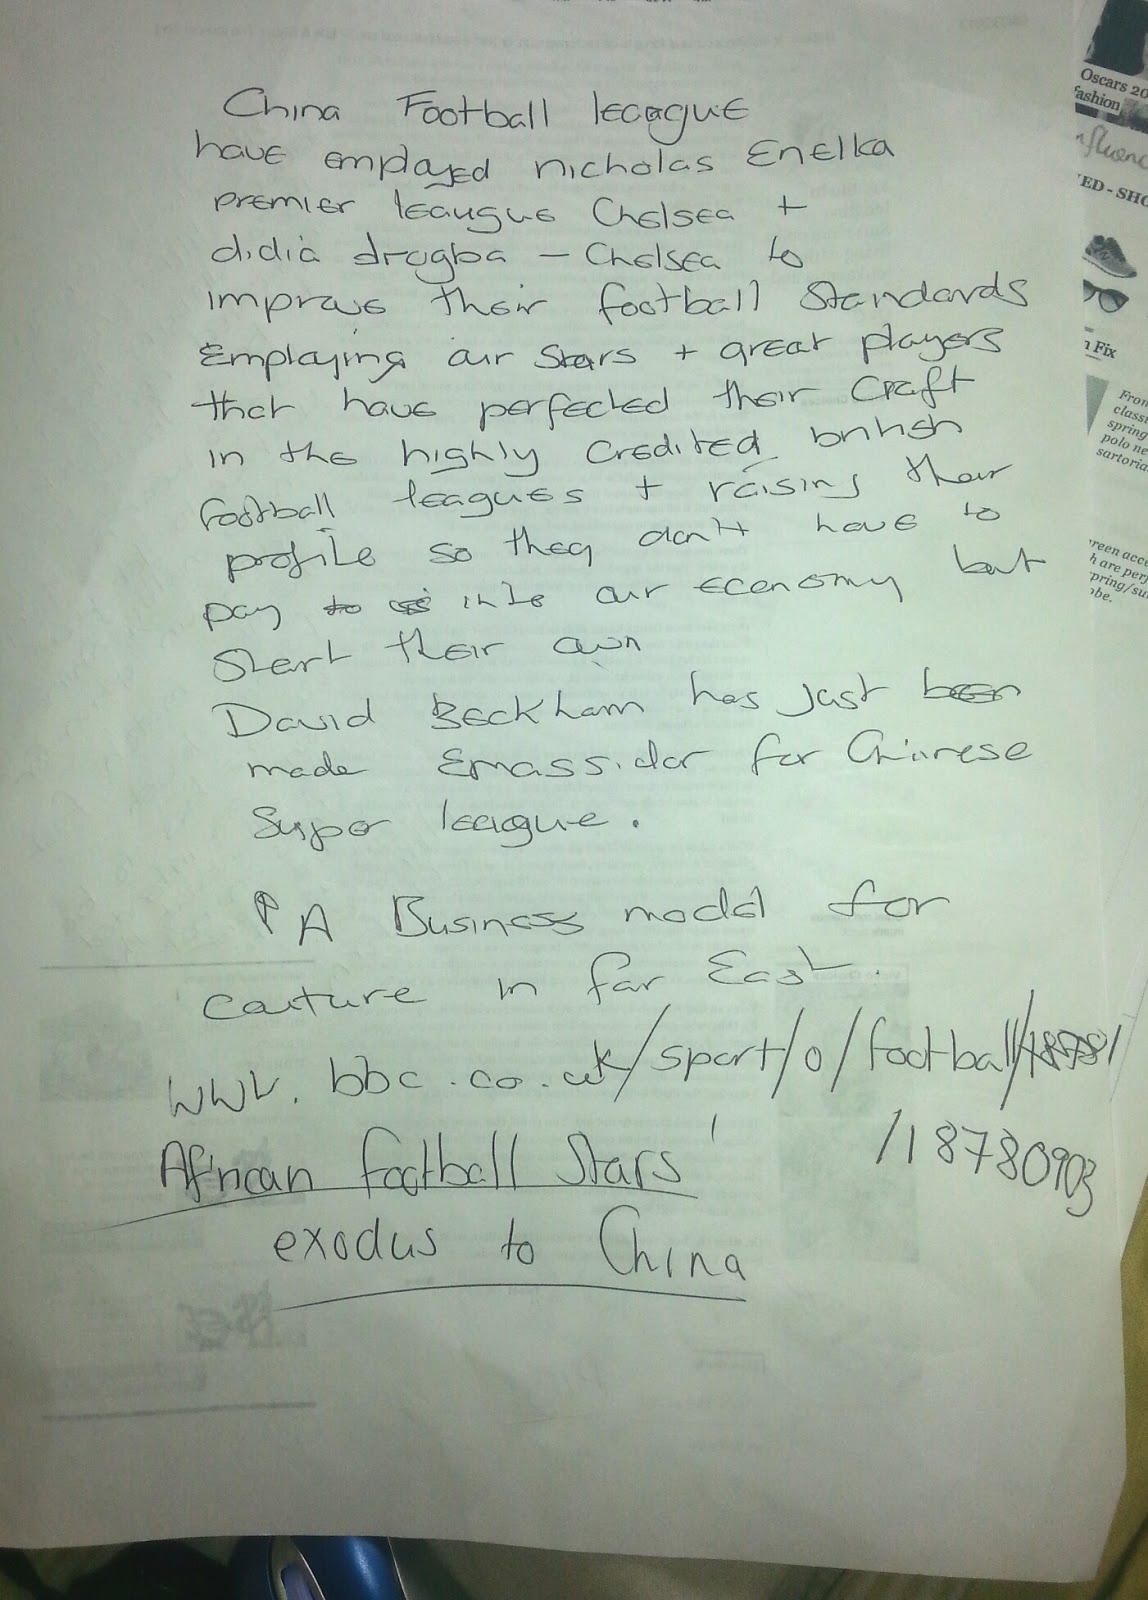 China Football leeague
have employed nicholas Enelka
premier leaugue Chelsea +
didia drogba - Chelsea to
improve their football Standards
Employing our Stars + great players
that have perfected their Craft
in the highly Credited british
football leagues + raising their
profile so they don't have to
pay to into our economy but
Start their own
David Beckham has just been
made Emassidor for Chinese
Super league.
↑ A Business model for
Couture in far East.
www.bbc.co.uk/sport/0/football/18781
/18780903
African football Stars'
exodus to China
Oscars 20
fashion
nfluenc
ED - SHO
n Fix
From
classi
spring
polo ne
sartoria
reen acce
h are per
pring/su
obe.